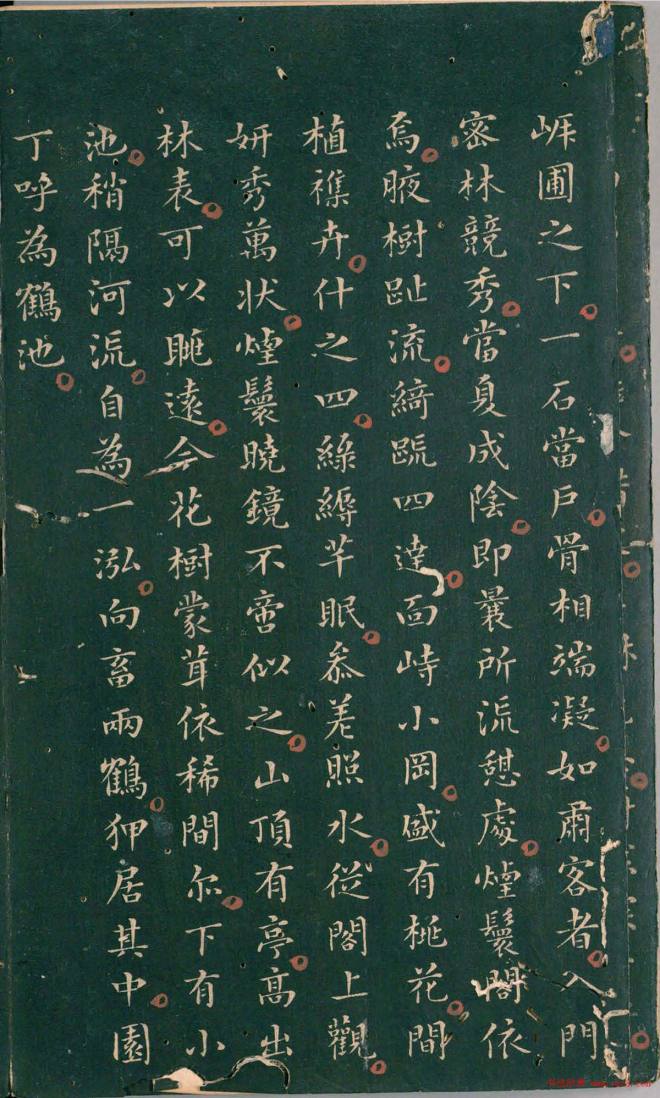 崕圃之下一石當戶骨相端凝如肅客者入門
密林競秀當夏成陰即曩所流憩處煙鬟閣依
焉腋樹趾流綺疏四達面峙小岡盛有桃花間
植襍卉什之四綠縟芊眠叅差照水從閣上觀
妍秀萬状煙鬟曉鏡不啻似之山頂有亭高出
林表可以眺遠今花樹蒙茸依稀間尔下有小
池稍隔河流自為一泓向畜兩鶴狎居其中園
丁呼為鶴池